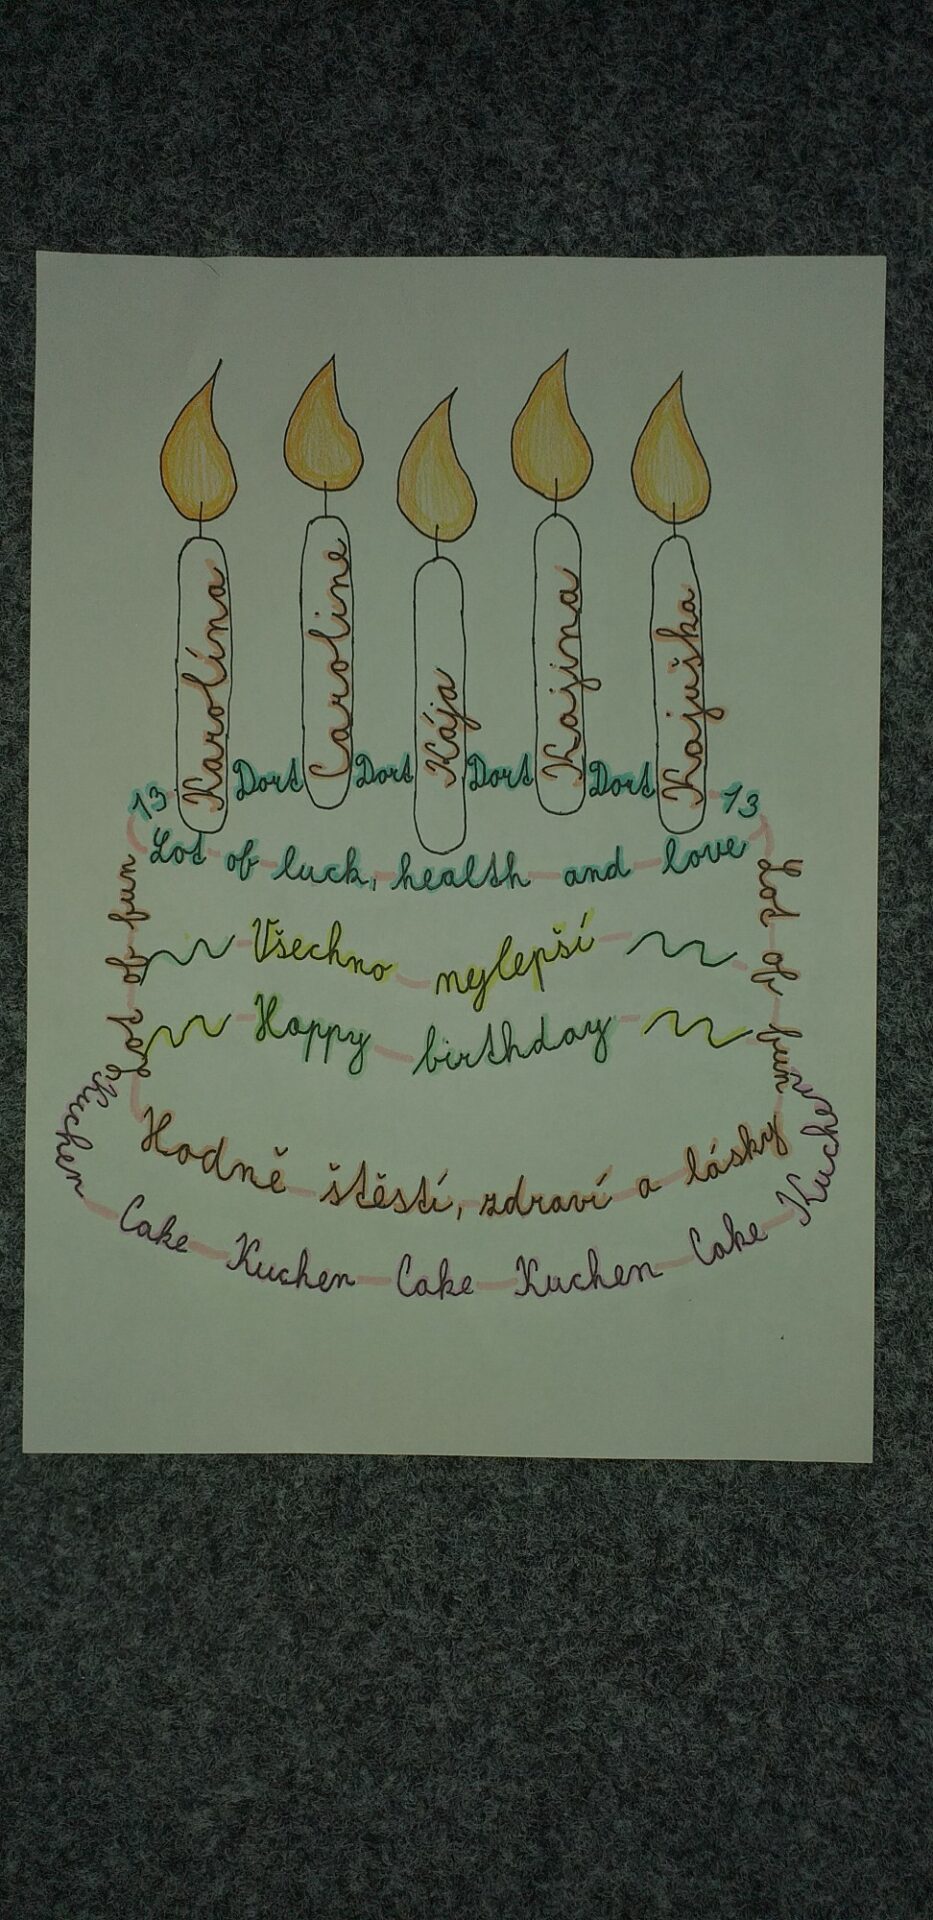 Karolína
Caroline
Kája
Kajina
Kajuška
13 Dort Dort Dort Dort 13
Lot of luck, health and love
Lot of fun
Lot of fun
Všechno nylepší
Happy birthday
Hodně štěstí, zdraví a lásky
Kuchen Cake Kuchen Cake Kuchen Cake Kuchen